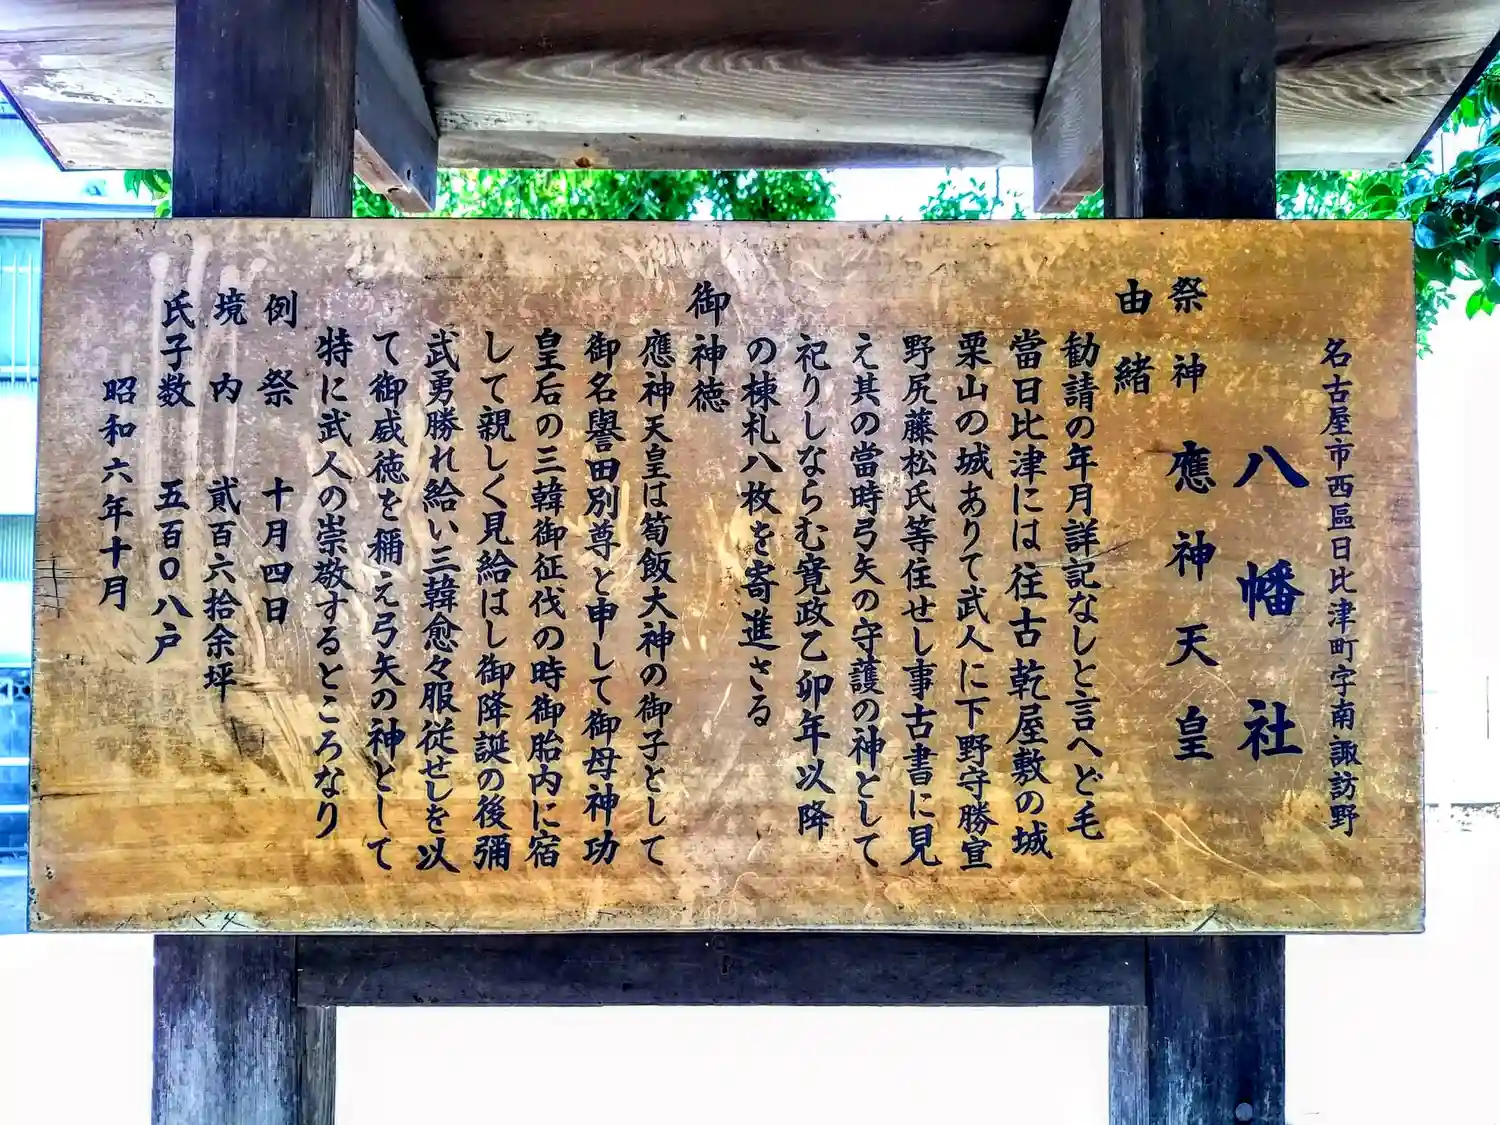 名古屋市西區日比津町字南諏訪野
八幡社
祭神 應神天皇
由緒
勧請の年月詳記なしと言へど毛
當日比津には往古乾屋敷の城
栗山の城ありて武人に下野守勝宣
野尻藤松氏等住せし事古書に見
え其の當時弓矢の守護の神として
祀りしならむ寛政乙卯年以降
の棟札八枚を寄進さる
御神徳
應神天皇は筍飯大神の御子として
御名譽田別尊と申して御母神功
皇后の三韓御征伐の時御胎内に宿
して親しく見給はし御降誕の後彌
武勇勝れ給い三韓愈々服従せしを以
て御威徳を稱え弓矢の神として
特に武人の崇敬するところなり
例祭 十月四日
境内 貳百六拾余坪
氏子数 五百〇八戸
昭和六年十月